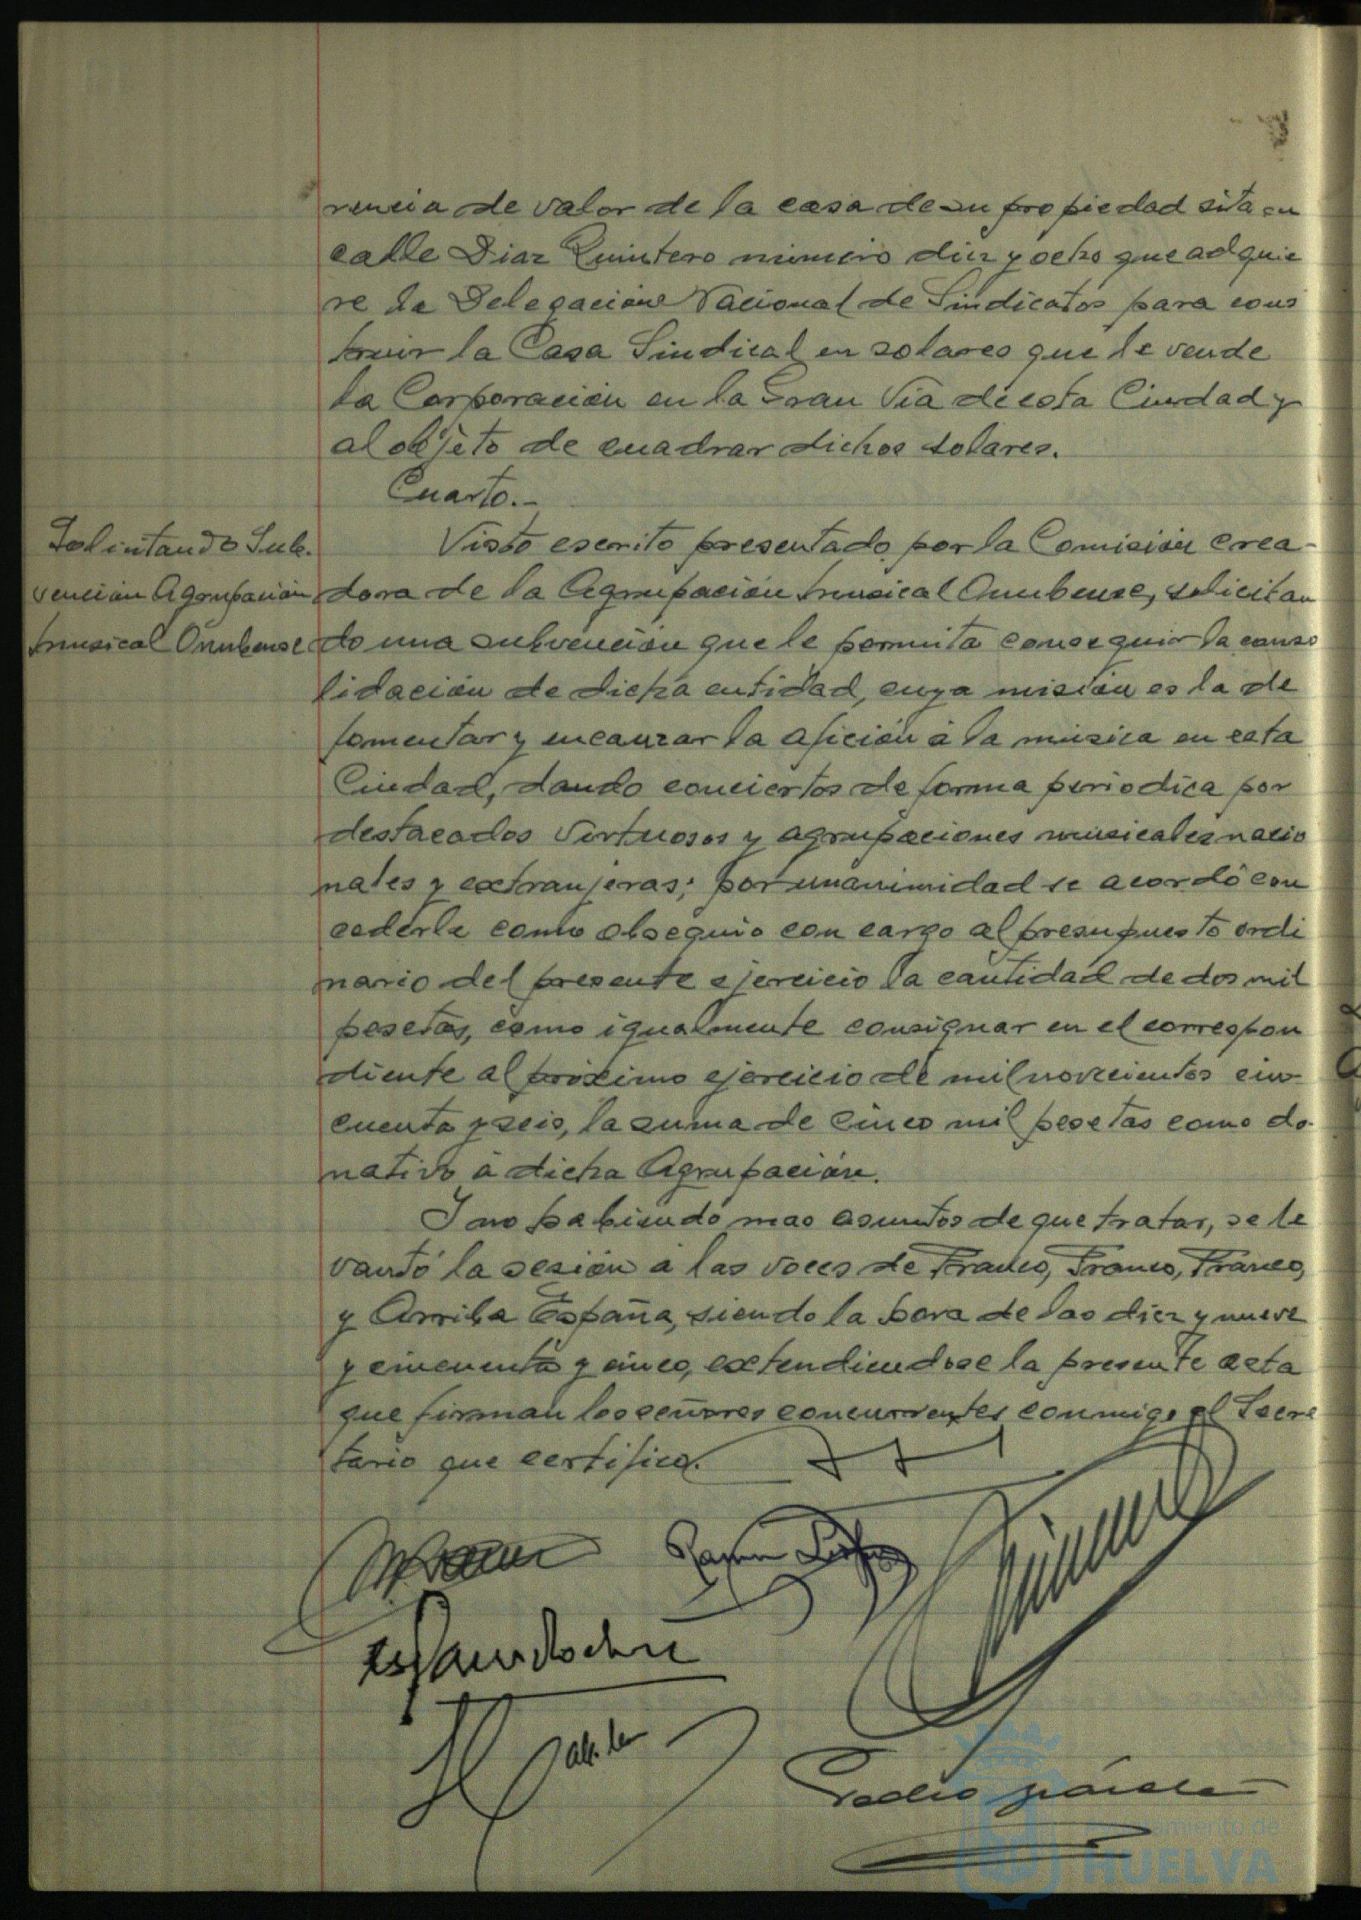 rencia de valor de la casa de su propiedad sita en
calle Diaz Quintero número diez y ocho que adquie
re la Delegacion Nacional de Sindicatos para cons
truir la Casa Sindical en solares que le vende
la Corporación en la Gran Via de esta Ciudad y
al objeto de cuadrar dichos solares.
Cuarto.-
Solicitando Sub.
vención Agrupación
musical Onubense
Visto escrito presentado por la Comisión crea-
dora de la Agrupación musical Onubense, solicitan
do una subvención que le permita conseguir la conso
lidación de dicha entidad, cuya misión es la de
fomentar y encauzar la afición á la música en esta
Ciudad, dando conciertos de forma periodica por
destacados virtuosos y agrupaciones musicales nacio
nales y extranjeras; por unanimidad se acordó con
cederle como obsequio con cargo al presupuesto ordi
nario del presente ejercicio la cantidad de dos mil
pesetas, como igualmente consignar en el correspon
diente al próximo ejercicio de mil novecientos cin-
cuenta y seis, la suma de cinco mil pesetas como do-
nativo á dicha Agrupación.
Y no habiendo mas asuntos de que tratar, se le
vantó la sesión a las voces de Franco, Franco, Franco,
y Arriba España, siendo la hora de las diez y nueve
y cincuenta y cinco, extendiendose la presente acta
que firman los señores concurrentes conmigo el Secre
tario que certifico.
Ramon
Pedro
Ayuntamiento de
HUELVA